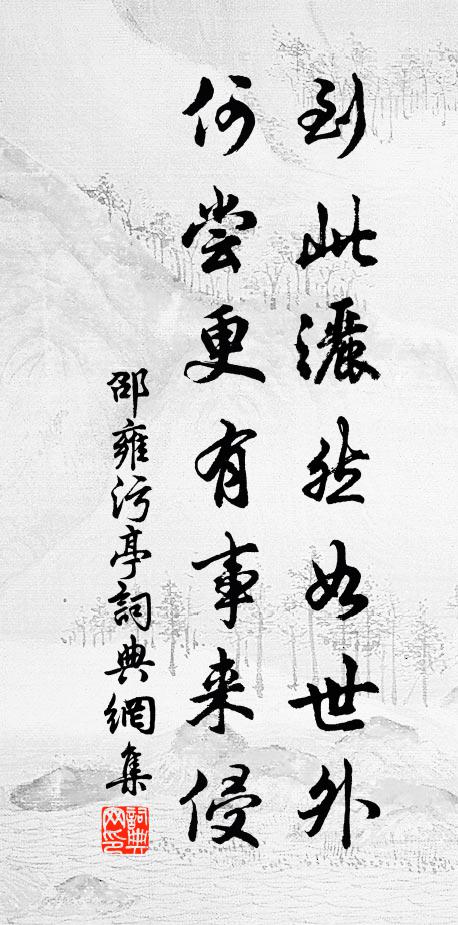 到此灑然如世外
何嘗更有事来侵
邵雍污亭詞典網集
詞典网印